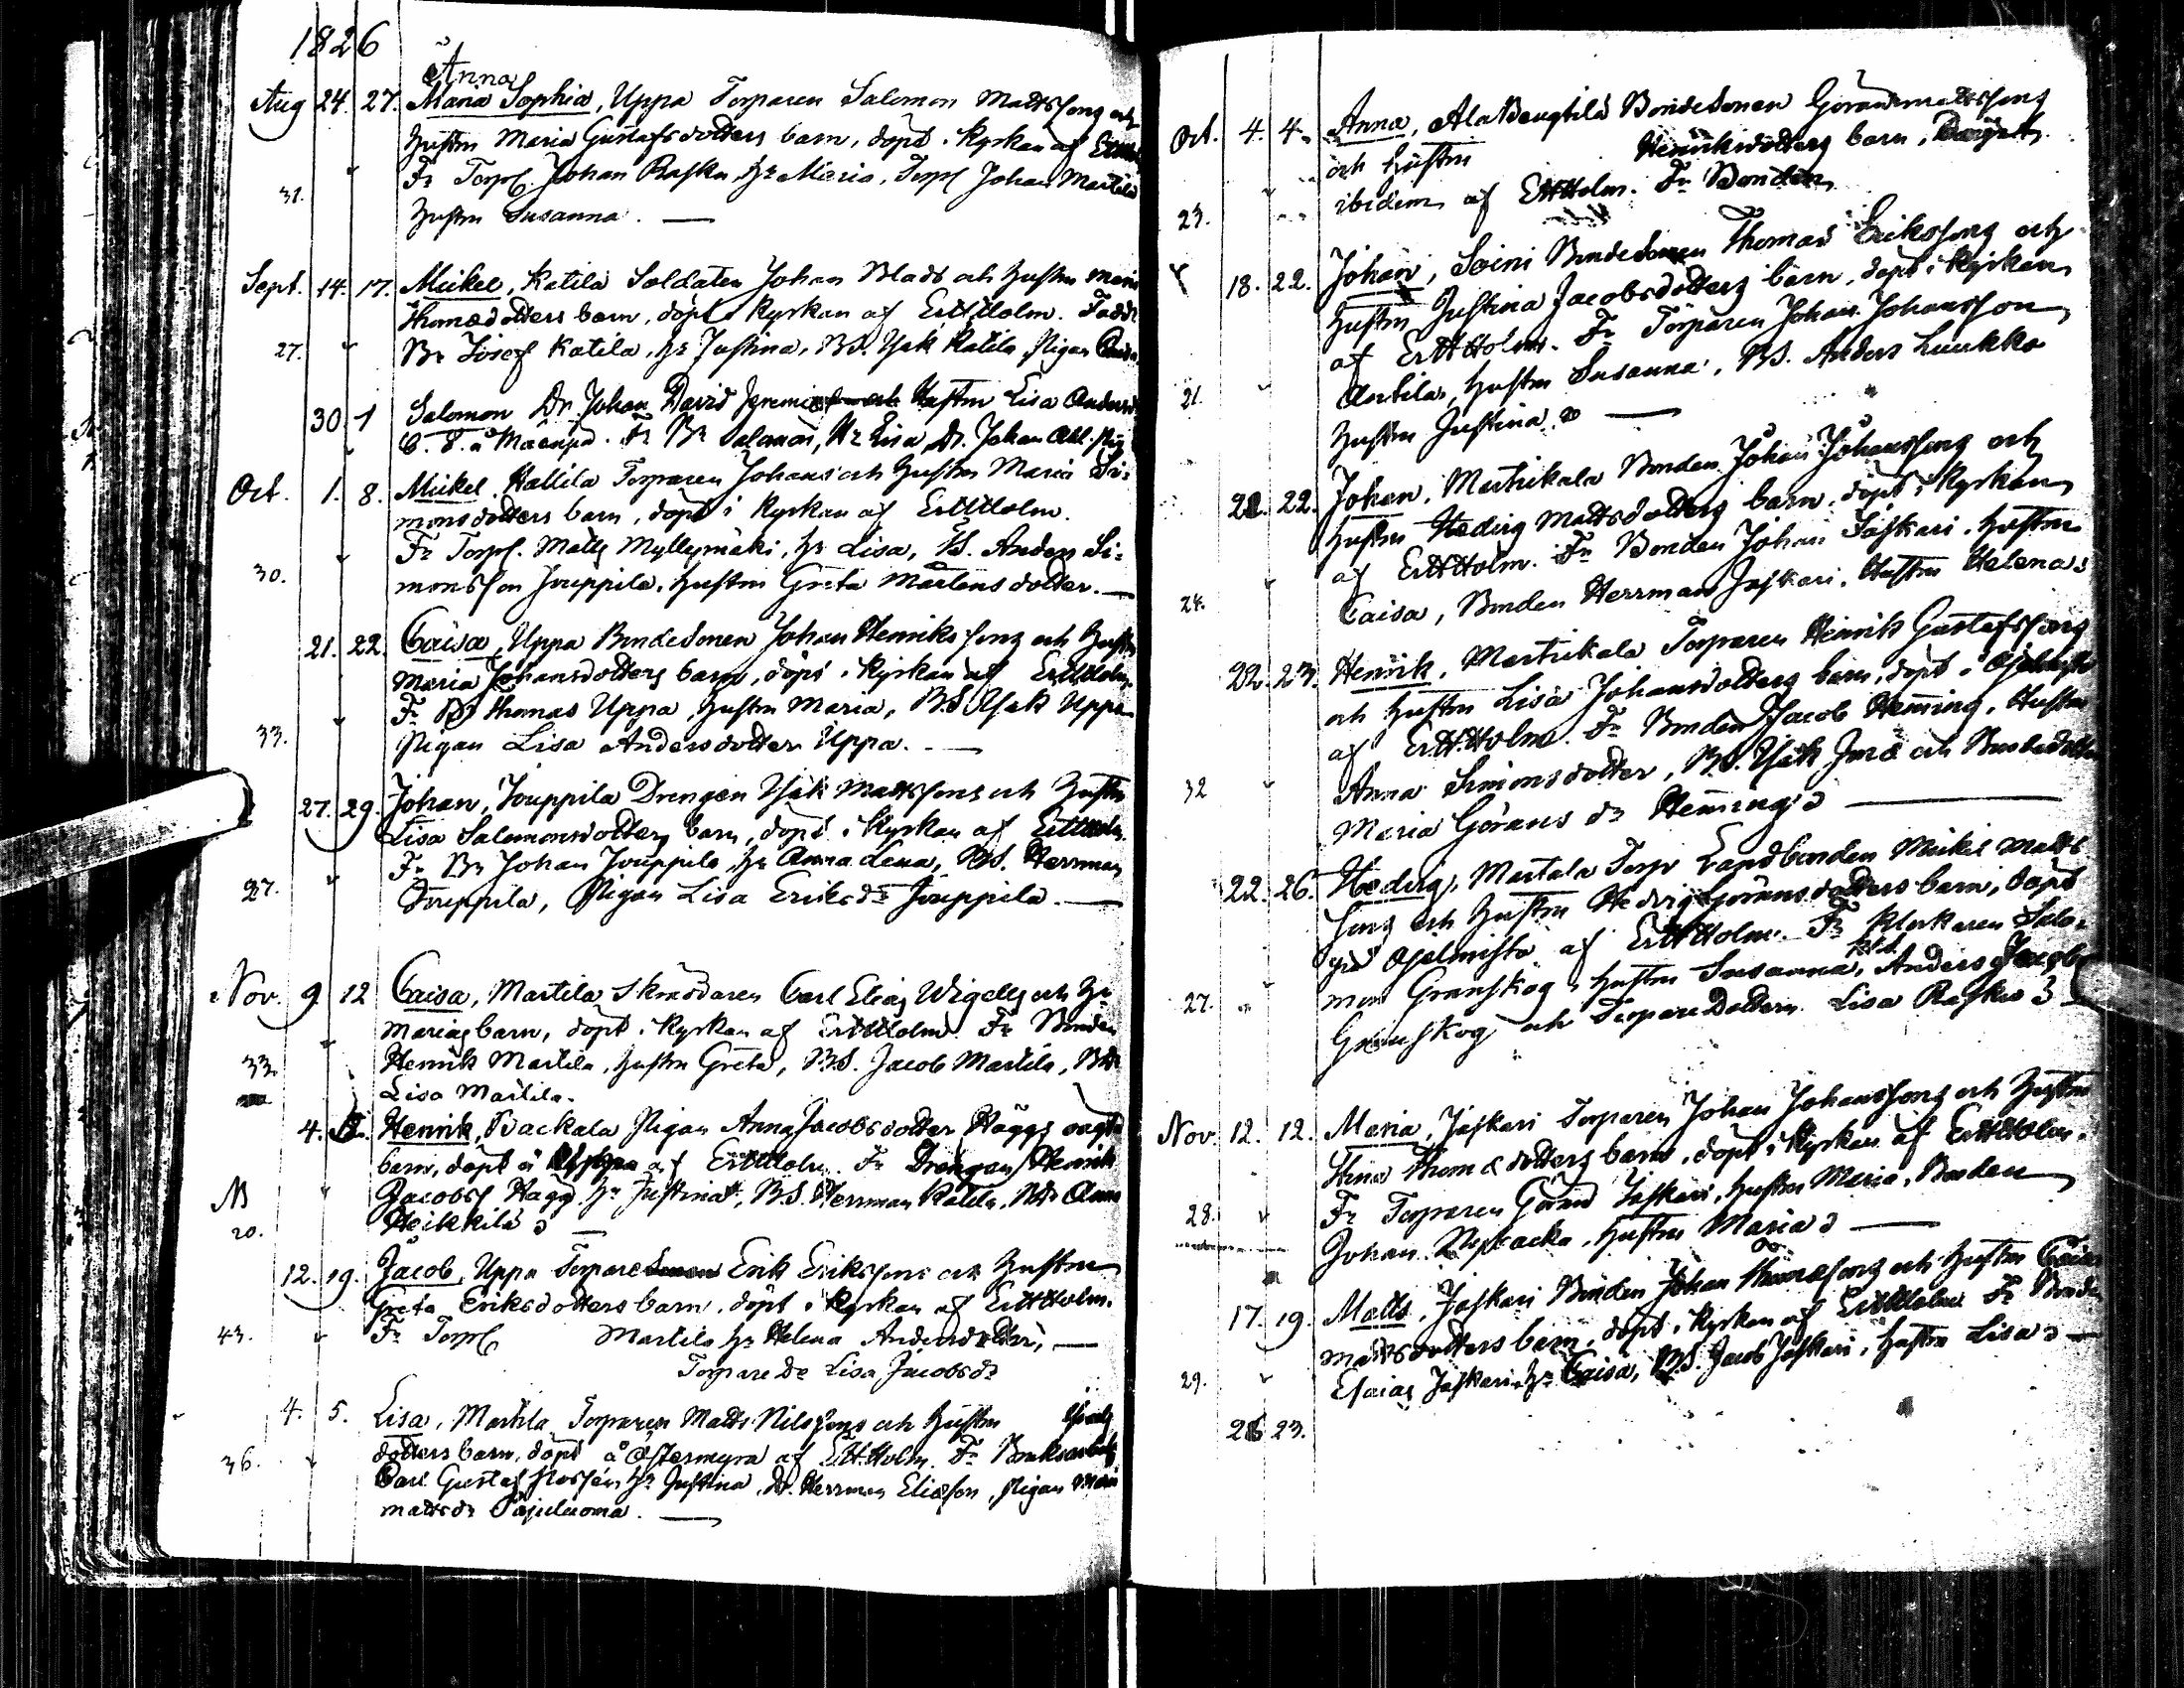 1826
Anna
Aug 24. 27. Maria Sophia, Uppa Torparen Salomon Mattssons och
hustrn Maria Gustafsdotters barn, döpt i Kyrkan af
Fr Torp. Johan Rasku, hr Maria, Torp Johan Martila
31.
hustrn Susanna. —
Sept. 14. 17. Mickel, Katila Soldaten Johan Blads och hustrn Maria
Thomædotters barn, döpt i Kyrkan af ErHHolm. Faddr
27. Br Josef Katila, hr Justina, BS. Isak Katila, Pigan
30 1 Salomon Dr. Johan David Jeremi Hustrn Lisa Anders
Fr Br Salomon, Hr Lisa, Dr. Johan
Oct. 1. 8. Mickel, Kallila Torparen Johans och hustrn Maria Si-
monsdotters barn, döpt i Kyrkan af ErHHolm.
Fr Torp. Matts Myllymäki, hr Lisa, BS. Anders Si-
30. monsson Jouppila, hustrn Greta Mårtensdotter. —
21. 22. Caisa, Uppa Bondesonen Johan Henrikssons och hustrn
Maria Johansdotters barn, döpt i Kyrkan af ErHHolm
Fr Br Thomas Uppa, hustrn Maria, BS. Isak Uppa
33.
Pigan Lisa Andersdotter Uppa. —
27. 29. Johan, Jouppila Drengen Isak Mattssons och hustrn
Lisa Salomonsdotters barn, döpt i Kyrkan af ErHHolm
Fr Br Johan Jouppila, hr Anna Lena, BS. Herrman
27. Jouppila, Pigan Lisa Eriksdr Jouppila. —
Nov. 9 12 Caisa, Martila Skräddaren Carl Elias Wigells och hr
Marias barn, döpt i Kyrkan af ErHHolm. Fr Bonden
33. Henrik Martila, hustrn Greta, BS. Jacob Martila, BDr
Lisa Martila.
4. Henrik, Backala Pigan Anna Jacobsdotter Häggs oägta
barn, döpt å af ErHHolm. Fr Drengen Henrik
Jacobss Hägg hr Justina, BS. Herrman Katila, BDr Anna
20. Heikkilä —
12. 19. Jacob, Uppa Torpare Erik Erikssons och hustrn
Greta Eriksdotters barn, döpt i Kyrkan af ErHHolm.
43. Fr Torp Martila hr Helena Andersdotter, —
Torpare Dr Lisa Jacobsdr
4. 5. Lisa, Martila Torparen Matts Nilssons och hustrn
dotters barn, döpt å Östermyra af ErHHolm. Fr
36. Carl Gustaf hr Justina, Dr. Herrman Eliasson, Pigan Maria
Mattsdr Pajuluoma. —
Oct. 4. 4. Anna, AlaBengtilä Bondesonen Göran Mattssons
och hustrn Henriksdotters barn,
ibidem af ErHHolm. Fr Bonden
23.
18. 22. Johan, Soini Bondesonen Thomas Erikssons och
hustrn Justina Jacobsdotters barn, döpt i Kyrkan
af ErHHolm. Fr Torparen Johan Johansson
21. Antila, hustrn Susanna, BS. Anders Luukko
hustrn Justina —
22. 22. Johan, Martikala Bonden Johan Johanssons och
hustrn Hedvig Mattsdotters barn, döpt i Kyrkan
af ErHHolm. Fr Bonden Johan Jaskari, hustrn
24. Caisa, Bonden Herrman Jaskari, hustrn Helena
22. 23. Henrik, Martikala Torparen Henrik Gustafssons
och hustrn Lisa Johansdotters barn, döpt å
af ErHHolm. Fr Bonden Jacob Heming, hustrn
32 Anna Simonsdotter, BS. Isak och
Maria Görans dr Heming —
22. 26. Hedvig, Martala Torp Landbonden Mickel Matts
sons och hustrn Hedvig Göransdotters barn, döpt
af ErHHolm. Fr Klockaren Salo-
mon Granskog, hustrn Susanna, Anders
27.
Granskog och Torpare Dottern Lisa Rasku
Nov. 12. 12. Maria, Jaskari Torparen Johan Johanssons och hustrn
Stina Thomædotters barn, döpt i Kyrkan af ErHHolm.
28. Fr Torparen Göran Jaskari, hustrn Maria, Bonden
Johan hustrn Maria —
17. 19. Matts, Jaskari Bonden Johan Thomæsons och hustrn Caisa
Mattsdotters barn, döpt i Kyrkan af ErHHolm Fr Bonden
29. Esaias Jaskari hr Caisa, BS. Jacob Jaskari, hustrn Lisa —
23.